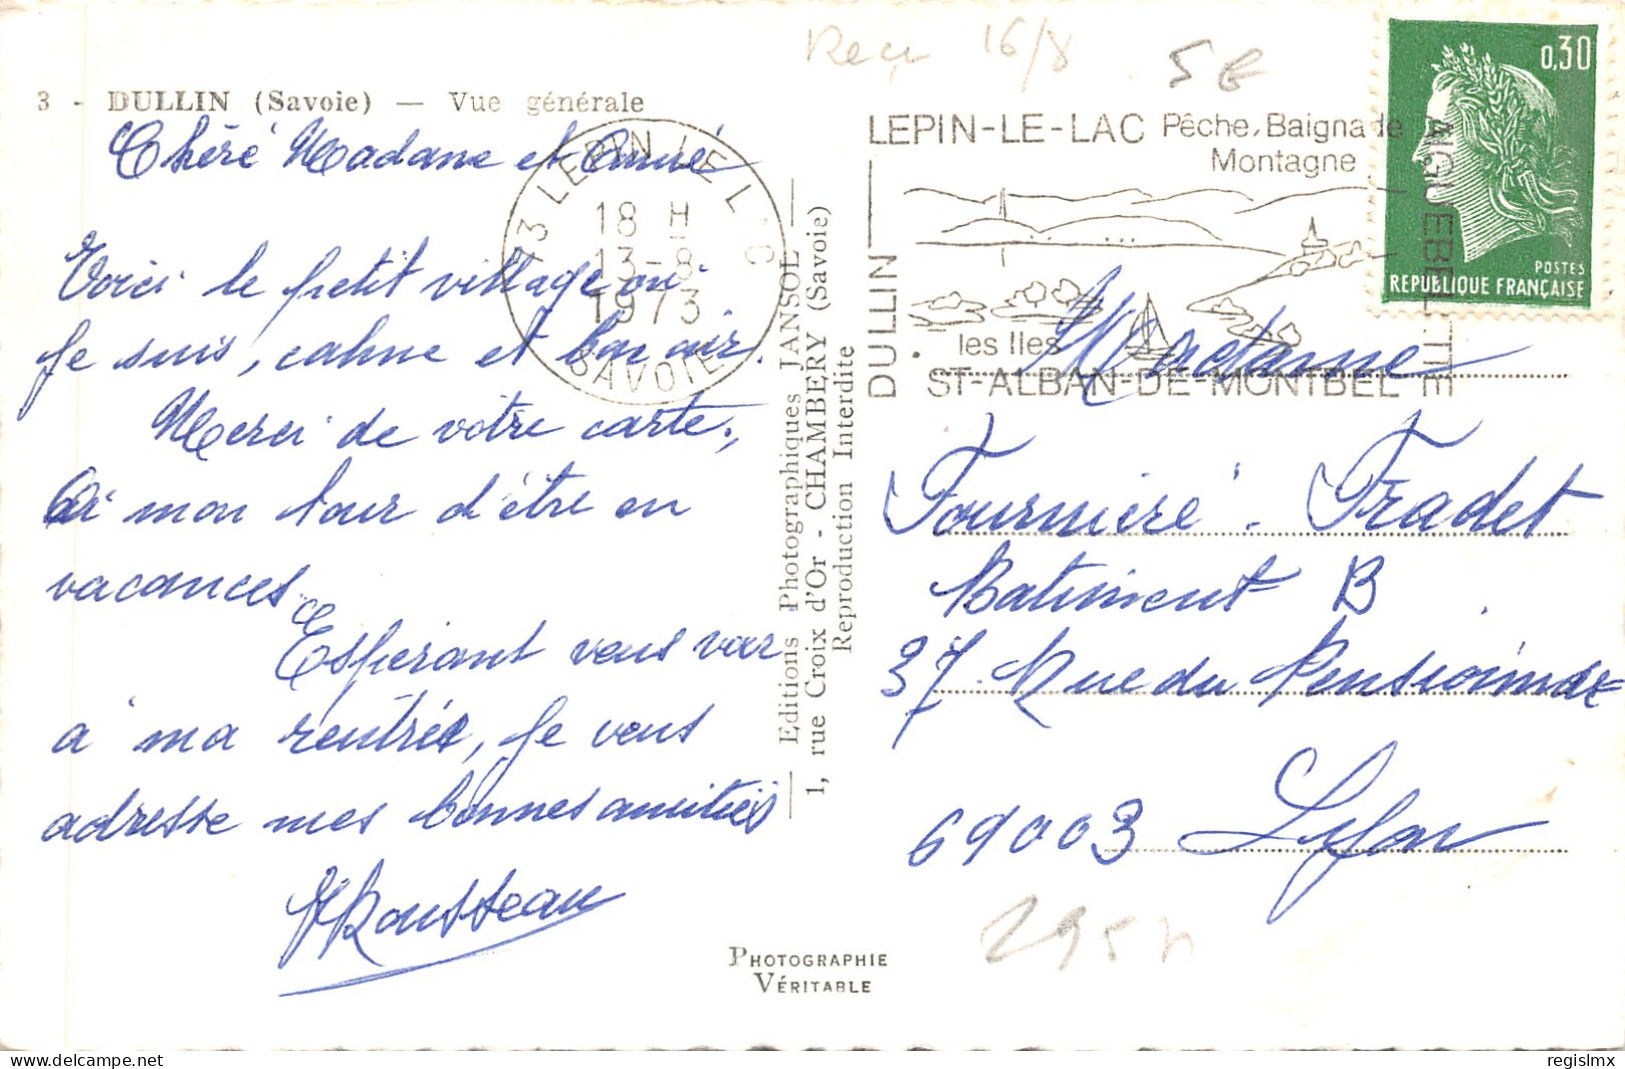 3 - DULLIN (Savoie) — Vue générale
Chéré Madame et Amié
Voici le petit village ou
je suis, calme et bon air.
Merci de votre carte,
mon tour d'être en
vacances.
Espérant vous voir
a ma rentrée, je vous
adresse mes bonnes amitiés
Rousseau
73 LEPIN LE LAC
18 H
13-8
1973
SAVOIE
Editions Photographiques JANSOL
1, rue Croix d'Or - CHAMBERY (Savoie)
Reproduction Interdite
PHOTOGRAPHIE
VÉRITABLE
Reçu 16/8
5€
LEPIN-LE-LAC Pêche, Baignade
Montagne
DULLIN
AIGUEBELETTE
les Iles
ST-ALBAN-DE-MONTBEL
0,30
POSTES
REPUBLIQUE FRANÇAISE
Madame
Fournieré. Fradet
Batiment B
37 Rue du Pensionnat
69003 Lyon
regislmx